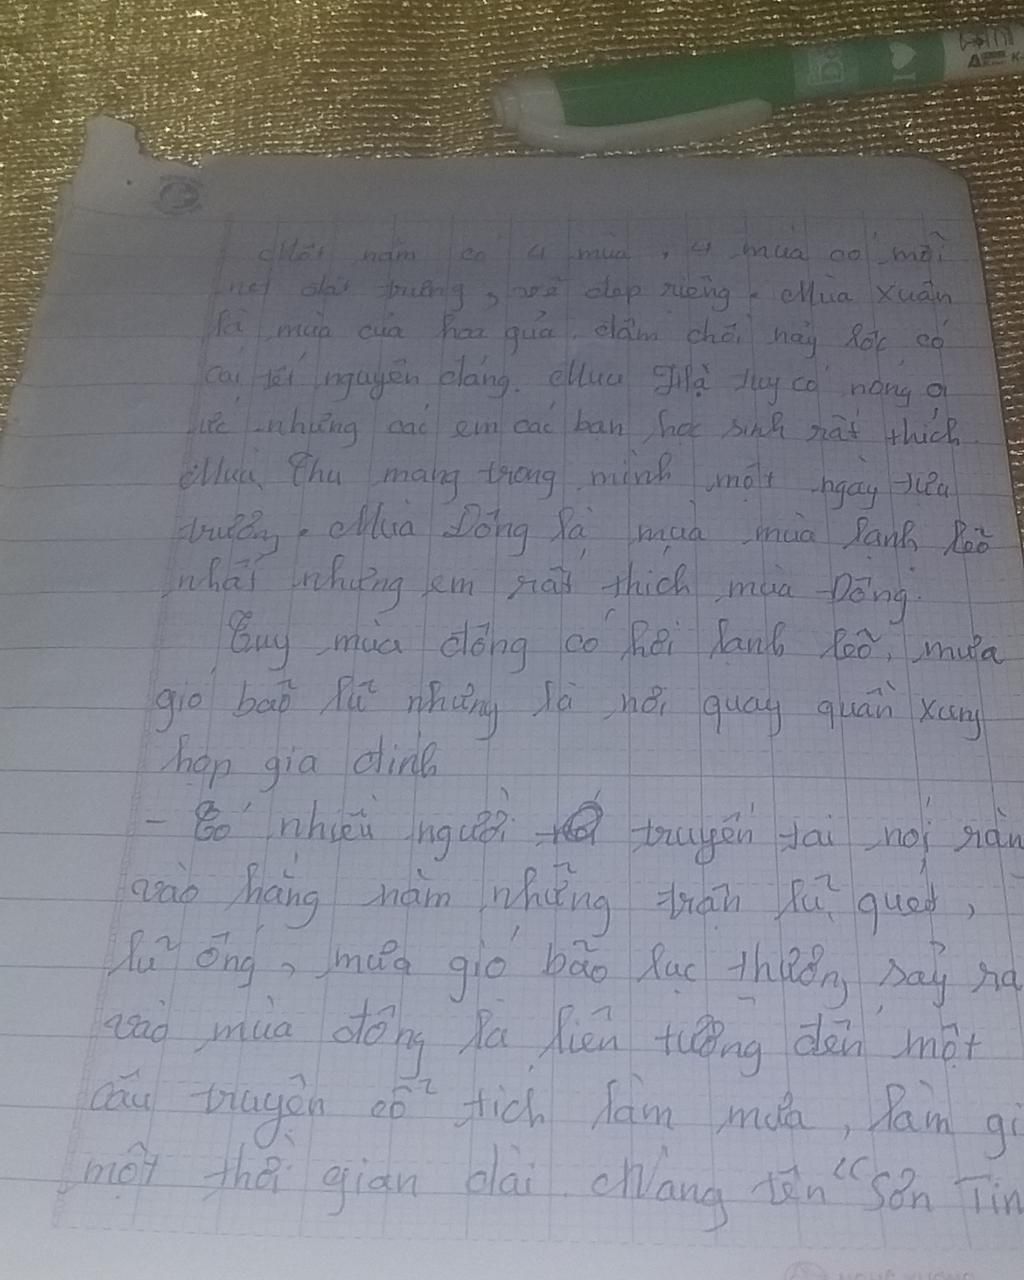 Một năm có 4 mùa, 4 mùa có mỗi
nét đặc trưng, vẻ đẹp riêng. Mùa Xuân
là mùa của hoa quả, đâm chồi nảy lộc, có
cái tết nguyên đáng. Mua Hạ tuy có nóng
nhưng các em các bạn học sinh rất thích
Mùa Thu mang trong mình một ngày tựu
trường. Mùa Đông là mùa mùa lạnh lẽo
nhất nhưng em rất thích mùa Đông.
Tuy mùa đông có hơi lạnh lẽo, mưa
gió bão lũ nhưng là nơi quay quần xung
họp gia đình
- Có nhiều người truyền tai nói rằn
vào hằng năm những trận lũ quet,
lũ ống, mưa gió bão lục thường sảy ra
vào mùa đông là liên tưởng đến một
câu truyện cổ tích làm mưa, làm gi
một thời gian dài. Chàng tên "Sơn Tin